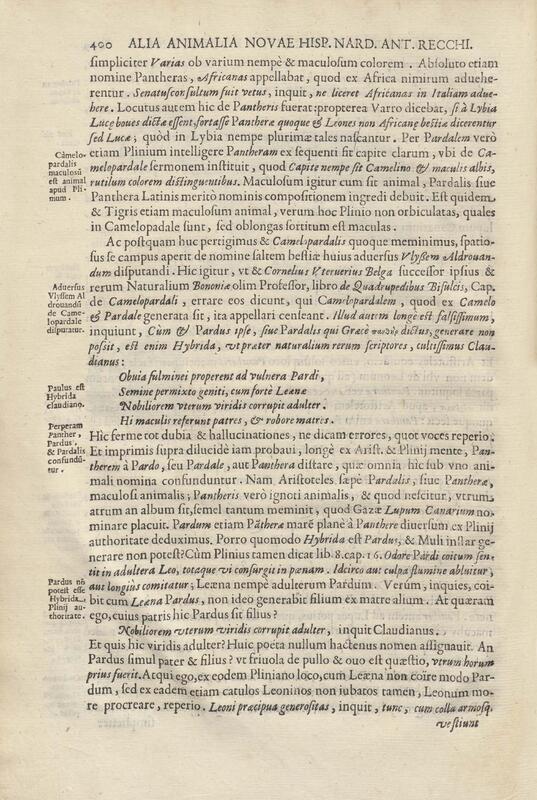 400 ALIA ANIMALIA NOVAE HISP. NARD. ANT. RECCHI.
simpliciter Varias ob varium nempè & maculosum colorem. Absoluto etiam
nomine Pantheras, Africanas appellabat, quod ex Africa nimirum adueherentur.
Senatusconsultum fuit vetus, inquit, ne liceret Africanas in Italiam aduehere.
Locutus autem hic de Pantheris fuerat: propterea Varro dicebat, si à Lybia
Lucę boues dictæ essent, fortasse Pantheræ quoque & Leones non Africanę bestiæ dicerentur
sed Lucæ; quòd in Lybia nempe plurimæ tales nascantur. Per Pardalem verò
etiam Plinium intelligere Pantheram ex sequenti sit capite clarum, vbi de Camelopardale
sermonem instituit, quod Capite nempe sit Camelino & maculis albis,
rutilum colorem distinguentibus. Maculosum igitur cum sit animal, Pardalis siue
Panthera Latinis meritò nominis compositionem ingredi debuit. Est quidem
& Tigris etiam maculosum animal, verum hoc Plinio non orbiculatas, quales
in Camelopadale sunt, sed oblongas sortitum est maculas.
Camelopardalis
maculosũ
est animal
apud Plinium.
Ac postquam huc pertigimus & Camelopardalis quoque meminimus, spatiosus
se campus aperit de nomine saltem bestiæ huius aduersus Vlyssem Aldrouandum
disputandi. Hic igitur, vt & Cornelius Vteruerius Belga successor ipsius &
rerum Naturalium Bononiæ olim Professor, libro de Quadrupedibus Bisulcis, Cap.
de Camelopardali, errare eos dicunt, qui Camelopardalem, quod ex Camelo
& Pardale generata sit, ita appellari censeant. Illud autem longè est falsissimum,
inquiunt, Cùm & Pardus ipse, siue Pardalis qui Græcè dictus, generare non
possit, est enim Hybrida, vt præter naturalium rerum scriptores, cultissimus Claudianus:
Aduersus
Vlyssem Aldrouandũ
de Camelopardale
disputatur.
Obuia fulminei properent ad vulnera Pardi,
Semine permixto geniti, cum fortè Leænæ
Nobiliorem vterum viridis corrupit adulter.
Hi maculis referunt patres, & robore matres.
Paulus est
Hybrida
claudiano.
Hìc ferme tot dubia & hallucinationes, ne dicam errores, quot voces reperio.
Et imprimis supra dilucidè iam probaui, longè ex Arist. & Plinij mente, Pantherem
à Pardo, seu Pardale, aut Panthera distare, quæ omnia hìc sub vno animali
nomina confunduntur. Nam Aristoteles sæpè Pardalis, siue Pantheræ,
maculosi animalis; Pantheris verò ignoti animalis, & quod nescitur, vtrum
atrum an album sit, semel tantum meminit, quod Gazæ Lupum Canarium nominare
placuit. Pardum etiam Pãtheræ marẽ planè à Panthere diuersum ex Plinij
authoritate deduximus. Porro quomodo Hybrida est Pardus, & Muli instar generare
non potest? Cùm Plinius tamen dicat lib. 8. cap. 16. Odore Pardi coitum sentit
in adultera Leo, totaque vi consurgit in pœnam. Idcirco aut culpa flumine abluitur,
aut longiùs comitatur; Leæna nempè adulterum Pardum. Verum, inquies, coibit
cum Leæna Pardus, non ideo generabit filium ex matre alium. At quæram
ego, cuius patris hic Pardus sit filius?
Perperam
Panther,
Pardus,
& Pardalis
confundũtur.
Pardus nõ
potest esse
Hybrida,
Plinij authoritate.
Nobiliorem vterum viridis corrupit adulter, inquit Claudianus.
Et quis hic viridis adulter? Huic poeta nullum hactenus nomen assignauit. An
Pardus simul pater & filius? vt friuola de pullo & ouo est quæstio, vtrum horum
prius fuerit. Atqui ego, ex eodem Pliniano loco, cum Leæna non coire modo Pardum,
sed ex eadem etiam catulos Leoninos non iubatos tamen, Leonum more
procreare, reperio. Leoni præcipua generositas, inquit, tunc, cum colla armosq.
vestiunt